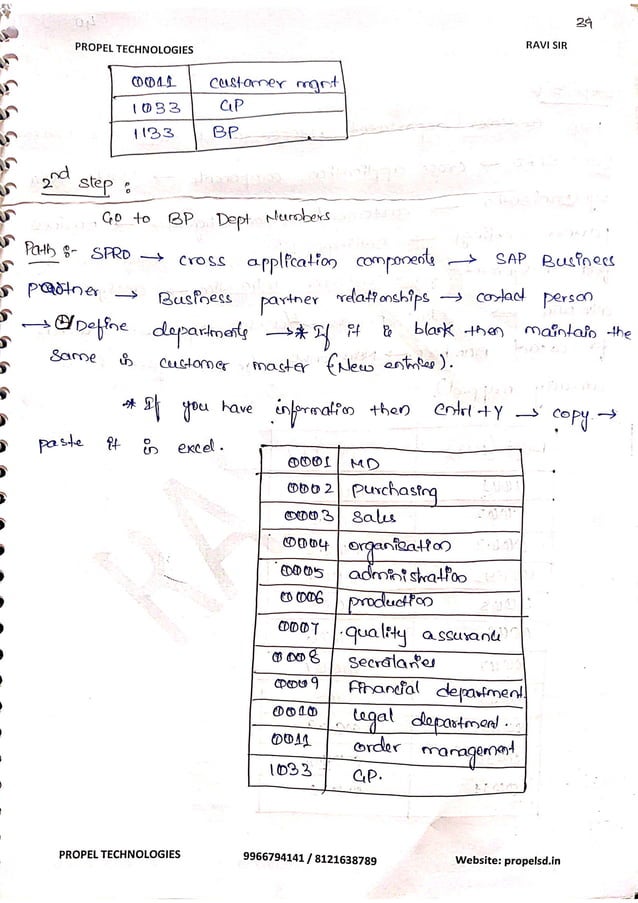 39
PROPEL TECHNOLOGIES RAVI SIR
0011 customer mgnt
1033 GP
1133 BP
2nd step :
Go to BP Dept Numbers
Path :- SPRO → cross application components → SAP Business
partner → Business partner relationships → contact person
→ Define departments → * If it is blank then maintain the
same in customer master (New entries).
* If you have information then cntrl+Y → copy →
paste it in excel.
0001 MD
0002 purchasing
0003 sales
0004 organization
0005 administration
0006 production
0007 quality assurance
0008 secretaries
0009 Financial department
0010 legal department.
0011 order management
1033 GP.
PROPEL TECHNOLOGIES 9966794141 / 8121638789 Website: propelsd.in